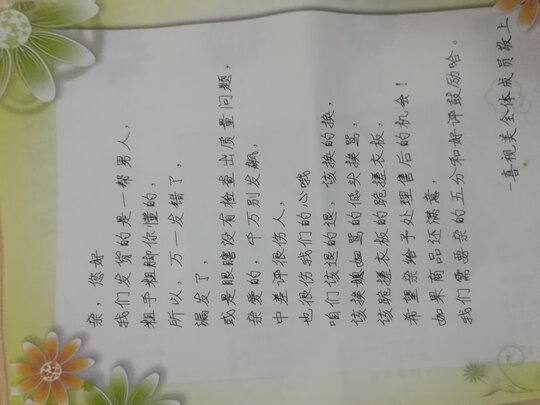 亲，您好
我们发货的是一帮男人，
粗手粗脚你懂的，
所以，万一发错了，
漏发了，
或是眼瞎没有检查出质量问题，
亲爱的，千万别发飙，
中差评很伤人，
也很伤我们的心哦
咱们该退的退，该换的换，
该挨媳妇骂的低头挨骂，
该跪搓衣板的跪搓衣板，
希望亲给予处理售后的机会！
如果商品还满意，
我们需要亲的五分和好评鼓励哈。
-喜视美全体成员敬上